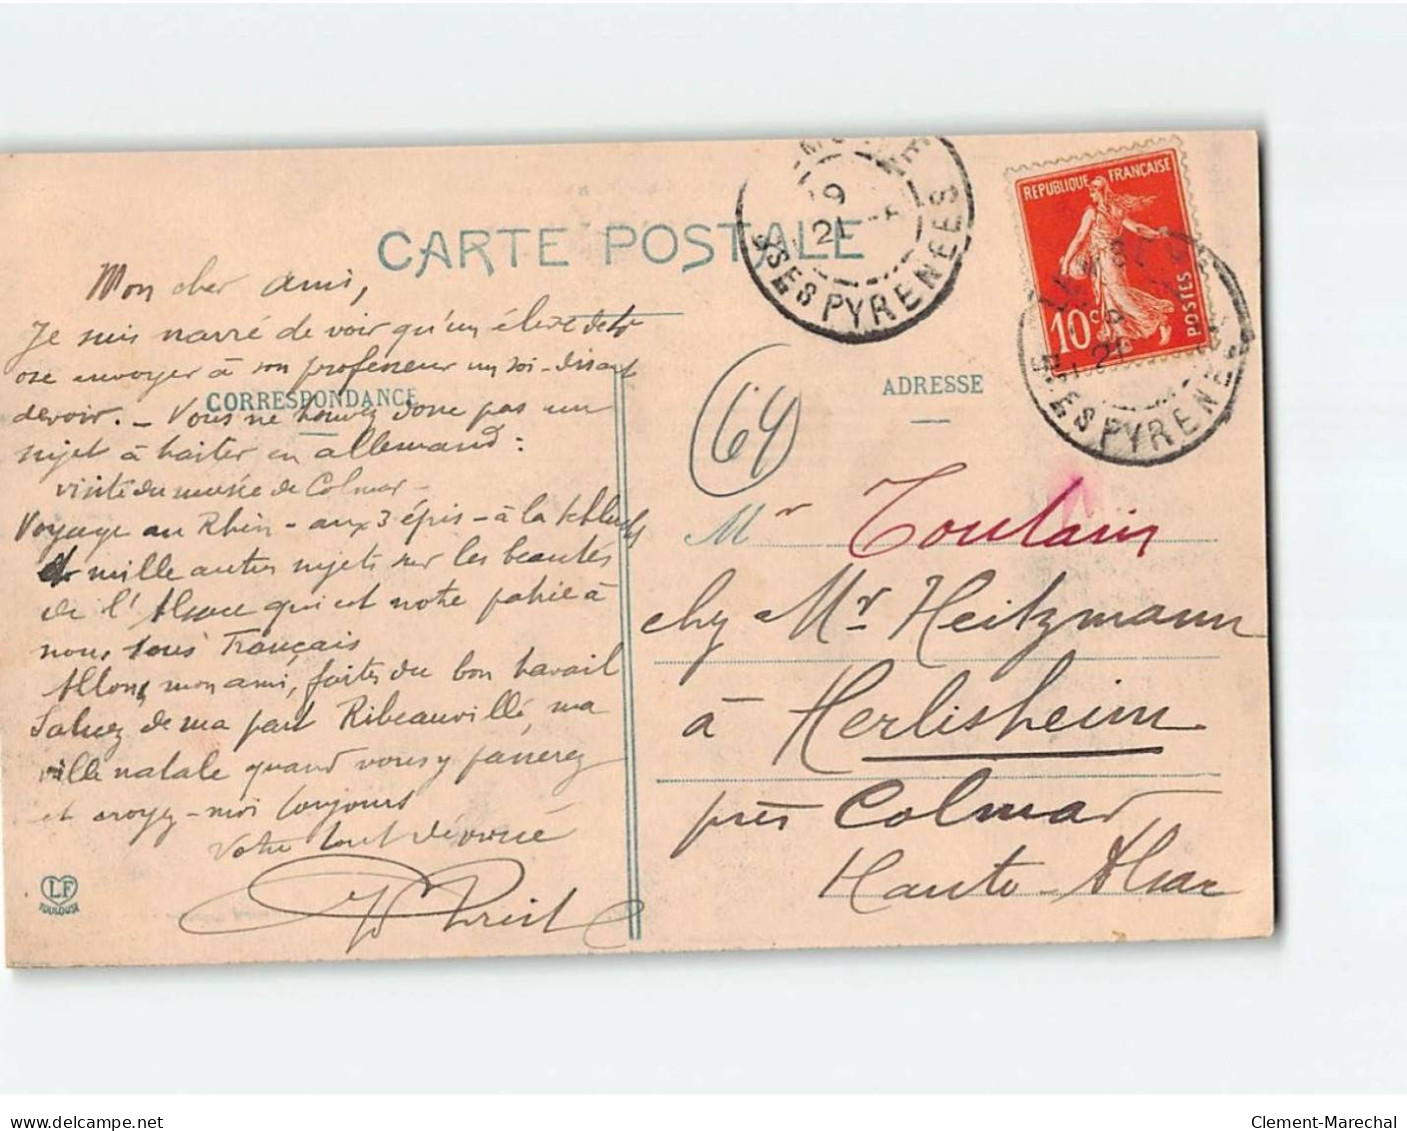 CARTE POSTALE
Mon cher ami,
Je suis navré de voir qu'un élève
ose envoyer à son professeur un soi-disant
CORRESPONDANCE
devoir. - Vous ne trouvez donc pas un
sujet à traiter en allemand :
visite du musée de Colmar -
Voyage au Rhin - aux 3 épis - à la Schlucht
& mille autres sujets sur les beautés
de l'Alsace qui est notre patrie à
nous tous Français
Allons, mon ami, faites du bon travail
Saluez de ma part Ribeauvillé, ma
ville natale quand vous y passerez
et croyez-moi toujours
Votre tout dévoué
LF
TOULOUSE
SSES PYRENEES
9
21
REPUBLIQUE FRANÇAISE
10c
POSTES
SSES PYRENEES
21
64
ADRESSE
Mr Toulain
chez Mr Heitzmann
à Herlisheim
près Colmar
Haute-Alsace
Clement-Marechal